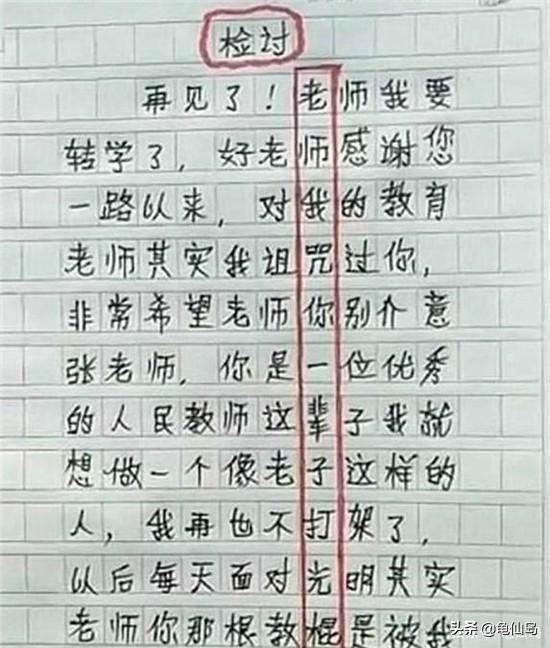 检讨
再见了！老师我要
转学了，好老师感谢您
一路以来，对我的教育
老师其实我诅咒过你，
非常希望老师你别介意
张老师，你是一位优秀
的人民教师这辈子我就
想做一个像老子这样的
人，我再也不打架了，
以后每天面对光明其实
老师你那根教棍是被我
头条 @龟仙岛